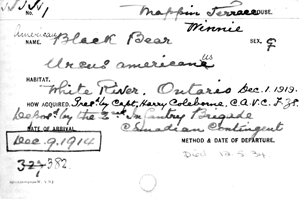 No. 1 Mappin Terrace HOUSE.
Winnie
American
NAME. Black Bear SEX. ♀
Ursus americanus
HABITAT.
White River. Ontario Dec. 1. 1919.
HOW ACQUIRED. Pres. by Capt. Harry Colebourne, C.A.V.C.
by the 2nd Infantry Brigade
DATE OF ARRIVAL. Canadian Contingent
Dec. 9. 1914 METHOD & DATE OF DEPARTURE.
Died 12. 5. 34.
382.